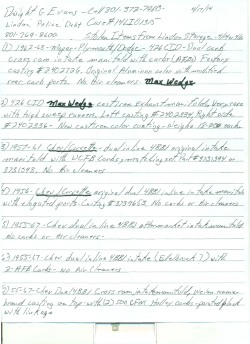 Dwight G Evans - Cell 301-372-7083- 4/17/14
Linden, Police Dept Case# 14120135
301-269-8600 Stolen Items from Linden Storage-
1) 1962-63- Mopar-Plymouth/Dodge- 426 CID- Dual carb
cross ram intake manifold with carbs (AFB) Factory
casting # 2402726. Original Aluminum color with modified
rear carb ports. No Air cleaners Max Wedge
2) 426 CID Max Wedge cast iron Exhaust manifolds. Very rare
with high sweep runners. Left casting # 2402354, Right side
# 2402356- New cast iron color coating- Weighs
3) 1957-61 Chev/Corvette- dual inline 4BBl original intake
manifold with WCFB Carbs, manifold casting part # 3731394 or
3731398. No Air cleaners
4) 1956- Chev/Corvette original dual 4BBl inline intake manifold
with elongated ports- casting # 3739653. No carbs or Air
cleaners-
5) 1955-67- Chev dual inline 4BBl aftermarket intake manifold
No carbs or Air cleaners-
6) 1955-67- Chev dual inline 4BBl intake (Edelbrock) with
2-AFB Carbs- no Air Cleaners
7) 55-67- Chev Dual 4BBl Cross ram intake manifold, Weiand
brand casting on top- with (2) 500 CFM Holley carbs- painted black
with linkage